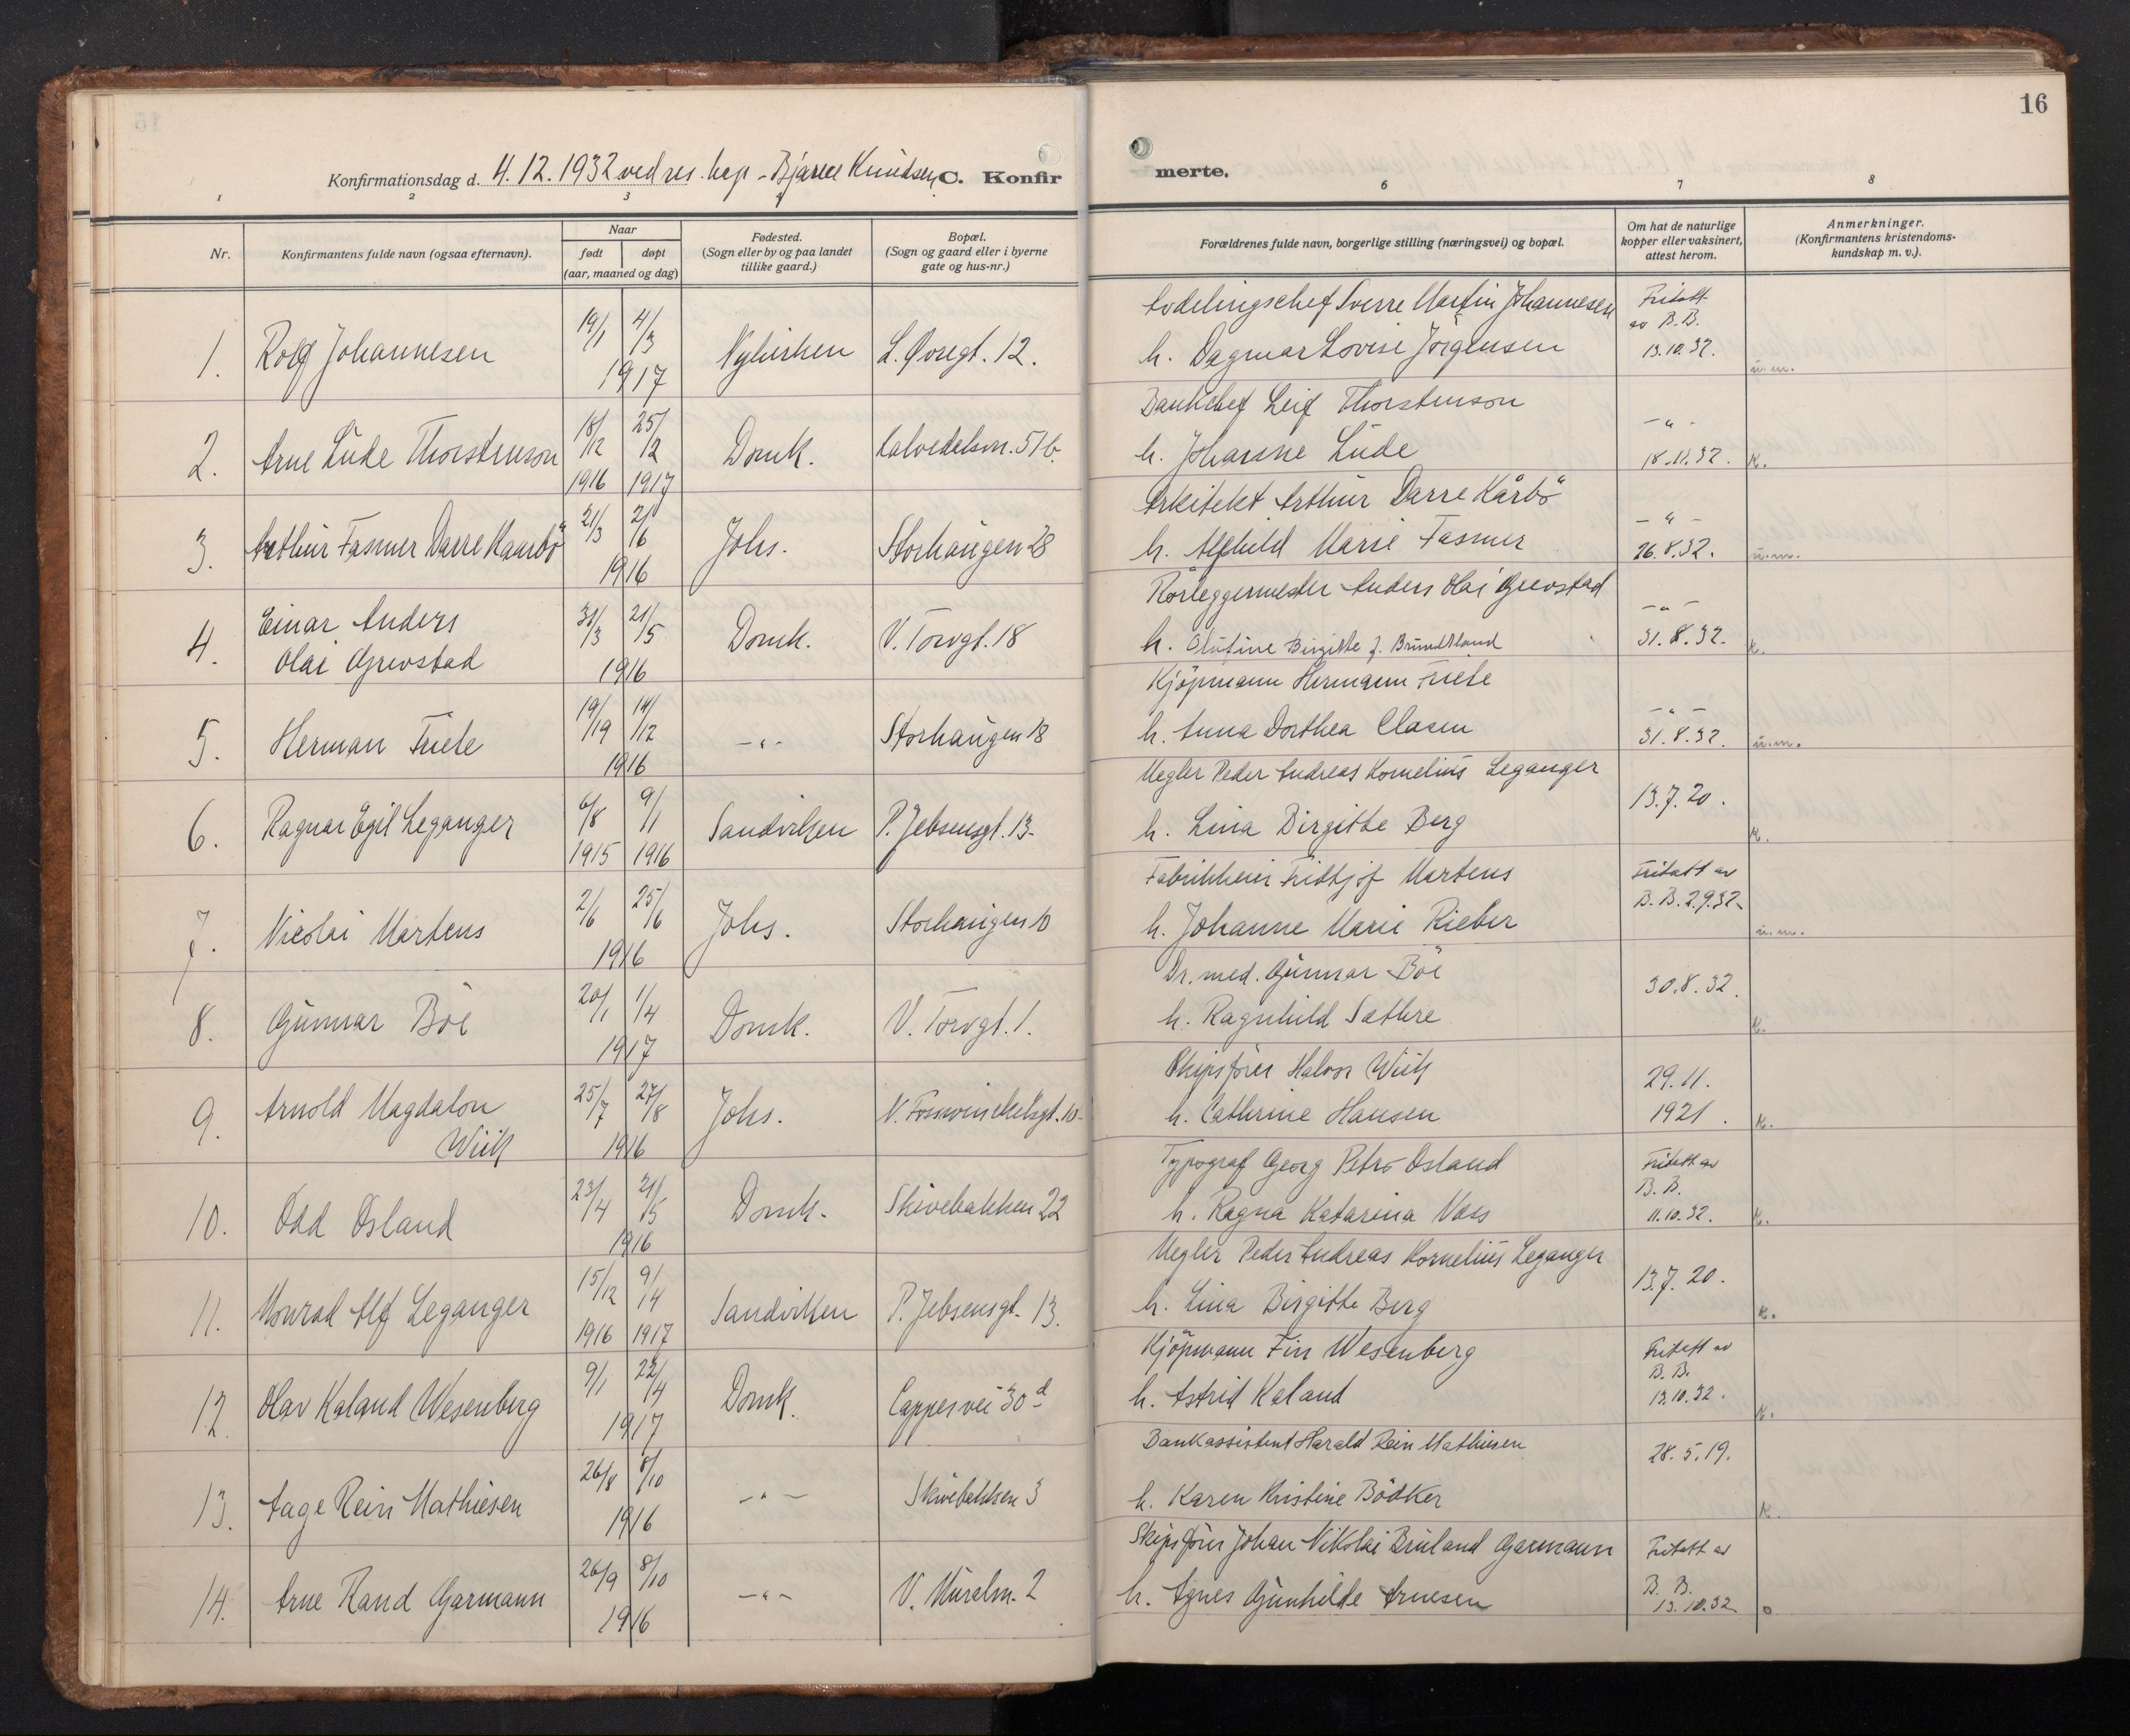 16
Konfirmationsdag d. 4.12.1932 ved res. kap. Bjarne Knudsen. C. Konfirmerte.
1 2 3 4 6 7 8
Nr.
Konfirmantens fulde navn (ogsaa efternavn).
Naar
født døpt
(aar, maaned og dag)
Fødested.
(Sogn eller by og paa landet
tillike gaard.)
Bopæl.
(Sogn og gaard eller i byerne
gate og hus-nr.)
Forældrenes fulde navn, borgerlige stilling (næringsvei) og bopæl.
Om hat de naturlige
kopper eller vaksinert,
attest herom.
Anmerkninger.
(Konfirmantens kristendoms-
kundskap m. v.).
1. Rolf Johannesen 19/1 4/3 1917 Nykirken L. Øvregt. 12.
Avdelingschef Sverre Martin Johannesen
h. Dagmar Lovise Jörgensen
Fritatt
av B.B.
13.10.32.
u.m.
2. Arne Lüde Thorstenson 18/12 1916 25/2 1917 Domk. Kalvedalsvn. 51b.
Bankchef Leif Thorstenson
h. Johanne Lüde
-"-
18.11.32. M.
3. Arthur Fasmer Darre Kaarbö 21/3 2/6 1916 Johs. Storhaugen 28
Arkitekt Arthur Darre Kårbö
h. Alfhild Marie Fasmer
-"-
26.8.32. u.m.
4. Einar Anders
Olai Grevstad 31/3 21/5 1916 Domk. V. Torvgt. 18
Rörleggermester Anders Olai Grevstad
h. Olufine Birgitte f. Brundtland
-"-
31.8.32. M.
5. Herman Friele 19/19 14/12 1916 -"- Storhaugen 18
Kjöpmann Hermann Friele
h. Anna Dorthea Clasen
-"-
31.8.32. u.m.
6. Ragnar Egil Leganger 6/8 1915 9/1 1916 Sandviken P. Jebsensgt. 13.
Megler Peder Andreas Kornelius Leganger
h. Lina Birgitte Berg
13.7.20.
M.
7. Nicolai Martens 2/6 25/6 1916 Johs. Storhaugen 10
Fabrikkeier Fridtjof Martens
h. Johanne Marie Rieber
Fritatt av
B.B. 2.9.32.
u.m.
8. Gunnar Böe 20/1 1/4 1917 Domk. V. Torvgt. 1.
Dr. med. Gunnar Böe
h. Ragnhild Sæthre
30.8.32.
M.
9. Arnold Magdalon
Wiik 25/7 27/8 1916 Johs. V. Fosswinckelsgt. 10.
Skipsförer Halvor Wiik
h. Cathrine Hansen
29.11.
1921. M.
10. Odd Osland 23/4 21/5 1916 Domk. Skivebakken 22
Typograf Georg Petro Osland
h. Ragna Katarina Voss
Fritatt av
B.B.
11.10.32. M.
11. Monrad Alf Leganger 15/12 1916 9/14 1917 Sandviken P. Jebsensgt. 13.
Megler Peder Andreas Kornelius Leganger
h. Lina Birgitte Berg
13.7.20.
M.
12. Olav Kaland Wesenberg 9/1 22/4 1917 Domk. Cappes vei 30d
Kjöpmann Fin Wesenberg
h. Astrid Kaland
Fritatt av
B.B.
13.10.32.
M.
13. Aage Rein Mathiesen 26/8 8/10 1916 -"- Skivebakken 3
Bankassistent Harald Rein Mathiesen
h. Karen Kristine Bödker
28.5.19.
M.
14. Arne Rand Garmann 26/9 8/10 1916 -"- V. Muralm. 2
Skipsförer Johan Nikolai Bruland Garmann
h. Agnes Gunhilde Arnesen
Fritatt av
B.B.
13.10.32.